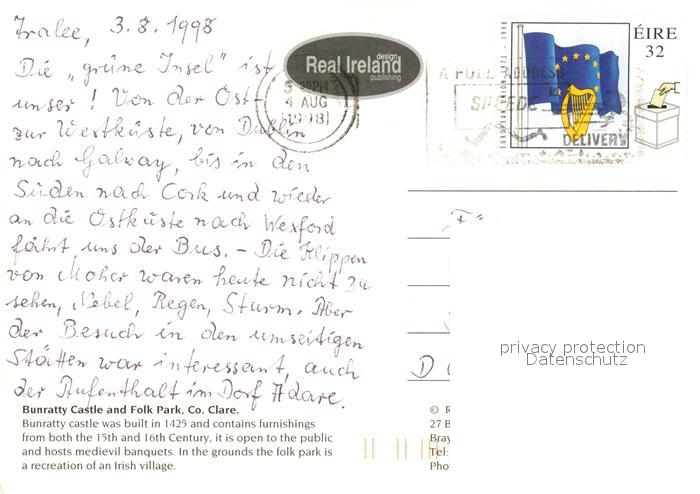 Tralee, 3.8.1998
Die „grüne Insel" ist
unser! Von der Ost-
zur Westküste, von Dublin
nach Galway, bis in den
Süden nach Cork und wieder
an die Ostküste nach Wexford
fährt uns der Bus. – Die Klippen
von Moher waren heute nicht zu
sehen, Nebel, Regen, Sturm. Aber
der Besuch in den umseitigen
Stätten war interessant, auch
der Aufenthalt im Dorf Adare.
Bunratty Castle and Folk Park, Co. Clare.
Bunratty castle was built in 1425 and contains furnishings
from both the 15th and 16th Century, it is open to the public
and hosts medievil banquets. In the grounds the folk park is
a recreation of an Irish village.
Real Ireland
design
publishing
4 AUG
1998
A FULL ADDRESS
SPEEDS
DELIVERY
EUROPEAN UNION 1973-1998
ÉIRE
32
D
privacy protection
Datenschutz
© R
27 B
Bray
Tel:
Pho